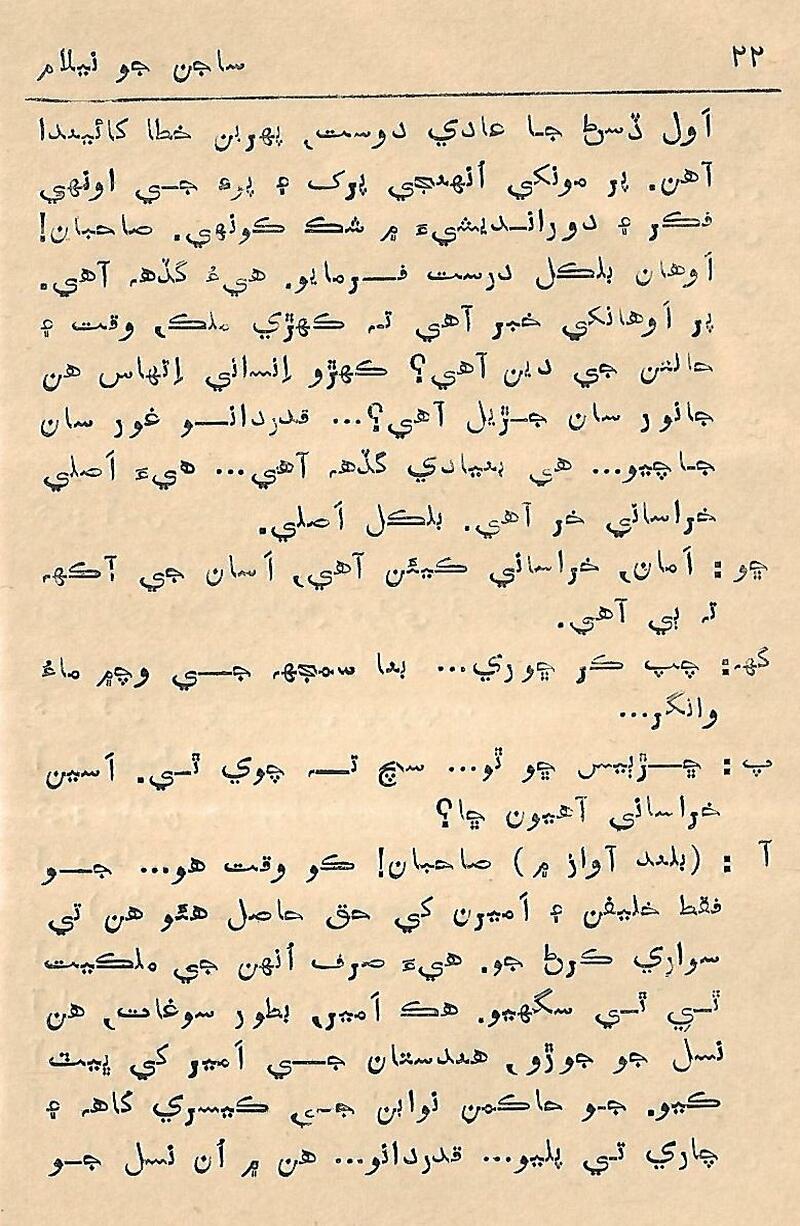 ۲۲
ساجن جو نيلام
اَول ڏسڻ جا عادي دوست، پهرين خطا کائيندا
آهن. پر مونکي اُنهنجي پرک ۽ پرءِ جي اونهي
فڪر ۽ دورانديشيءَ ۾ شڪ ڪونهي. صاحبان!
اَوهان بلڪل درست فرمايو. هيءُ گڏهه آهي.
پر اَوهانکي خبر آهي ته ڪهڙي ملڪ، وقت ۽
حالتن جي دين آهي؟ ڪهڙو اِنساني اِتهاس هن
جانور سان جڙيل آهي؟... قدردانو غور سان
جاچيو... هي بنيادي گڏهه آهي... هيءَ اَصلي
خراساني خر آهي. بلڪل اَصلي.
ڇو : اَمان، خراساني ڪيئن آهي، اَسان جي آڪهه
ته ٻي آهي.
گهه: چپ ڪر ڇوري... بنا سمجهه جي وچ۾ ماءُ
وانگر...
پ : ڇڙٻيس ڇو ٿو... سچ ته چوي ٿي. اَسين
خراساني آهيون ڇا؟
آ : (بلند آواز ۾) صاحبان! ڪو وقت هو... جو
فقط خليفن ۽ اَميرن کي حق حاصل هئو هن تي
سواري ڪرڻ جو. هيءَ صرف اُنهن جي ملڪيت
ٿي ٿي سگهيو. هڪ اَمير، بطور سوغات، هن
نسل جو جوڙو، هندستان جي اَمير کي ڀيٽ
ڪيو. جو حاڪمن نوابن جي، ڪيسري گاهه ۽
چاري تي پليو... قدردانو... هن ۾ اُن نسل جو